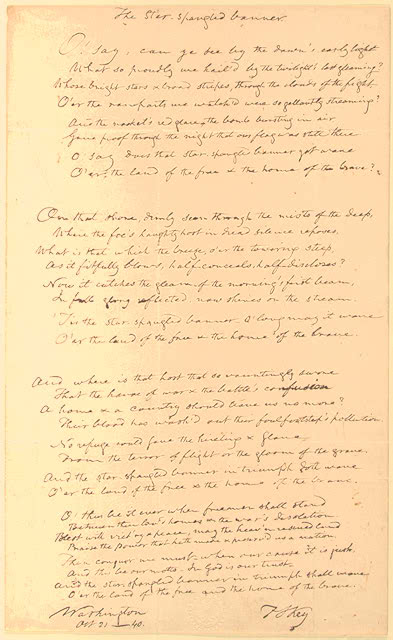 The Star-spangled banner
O! say, can ye see by the dawn's early light
What so proudly we hail'd by the twilight's last gleaming?
Whose bright stars & broad stripes, through the clouds of the fight
O'er the ramparts we watch'd were so gallantly streaming?
And the rocket's red glare, the bomb bursting in air
Gave proof through the night that our flag was still there
O! say does that star-spangled banner yet wave
O'er the land of the free & the home of the brave?
On that shore, dimly seen through the mists of the deep,
Where the foe's haughty host in dread silence reposes,
What is that which the breeze, o'er the towering steep,
As it fitfully blows, half-conceals, half-discloses?
Now it catches the gleam of the morning's first beam,
In full glory reflected now shines on the stream.
'Tis the star-spangled banner O! long may it wave
O'er the land of the free & the home of the brave.
And where is that host that so vauntingly swore
That the havoc of war & the battle's confusion
A home & a country should leave us no more?
Their blood has wash'd out their foul footstep's pollution.
No refuge could save the hireling & slave
From the terror of flight or the gloom of the grave,
And the star-spangled banner in triumph doth wave
O'er the land of the free & the home of the brave.
O! thus be it ever when freemen shall stand
Between their lov'd homes & the war's desolation
Blest with vict'ry & peace, may the heav'n rescued land
Praise the power that hath made & preserv'd us a nation
Then conquer we must when our cause it is just,
And this be our motto - In God is our trust.
And the star-spangled banner in triumph shall wave
O'er the land of the free and the home of the brave.
Washington
Oct 21 - 40.
F S Key